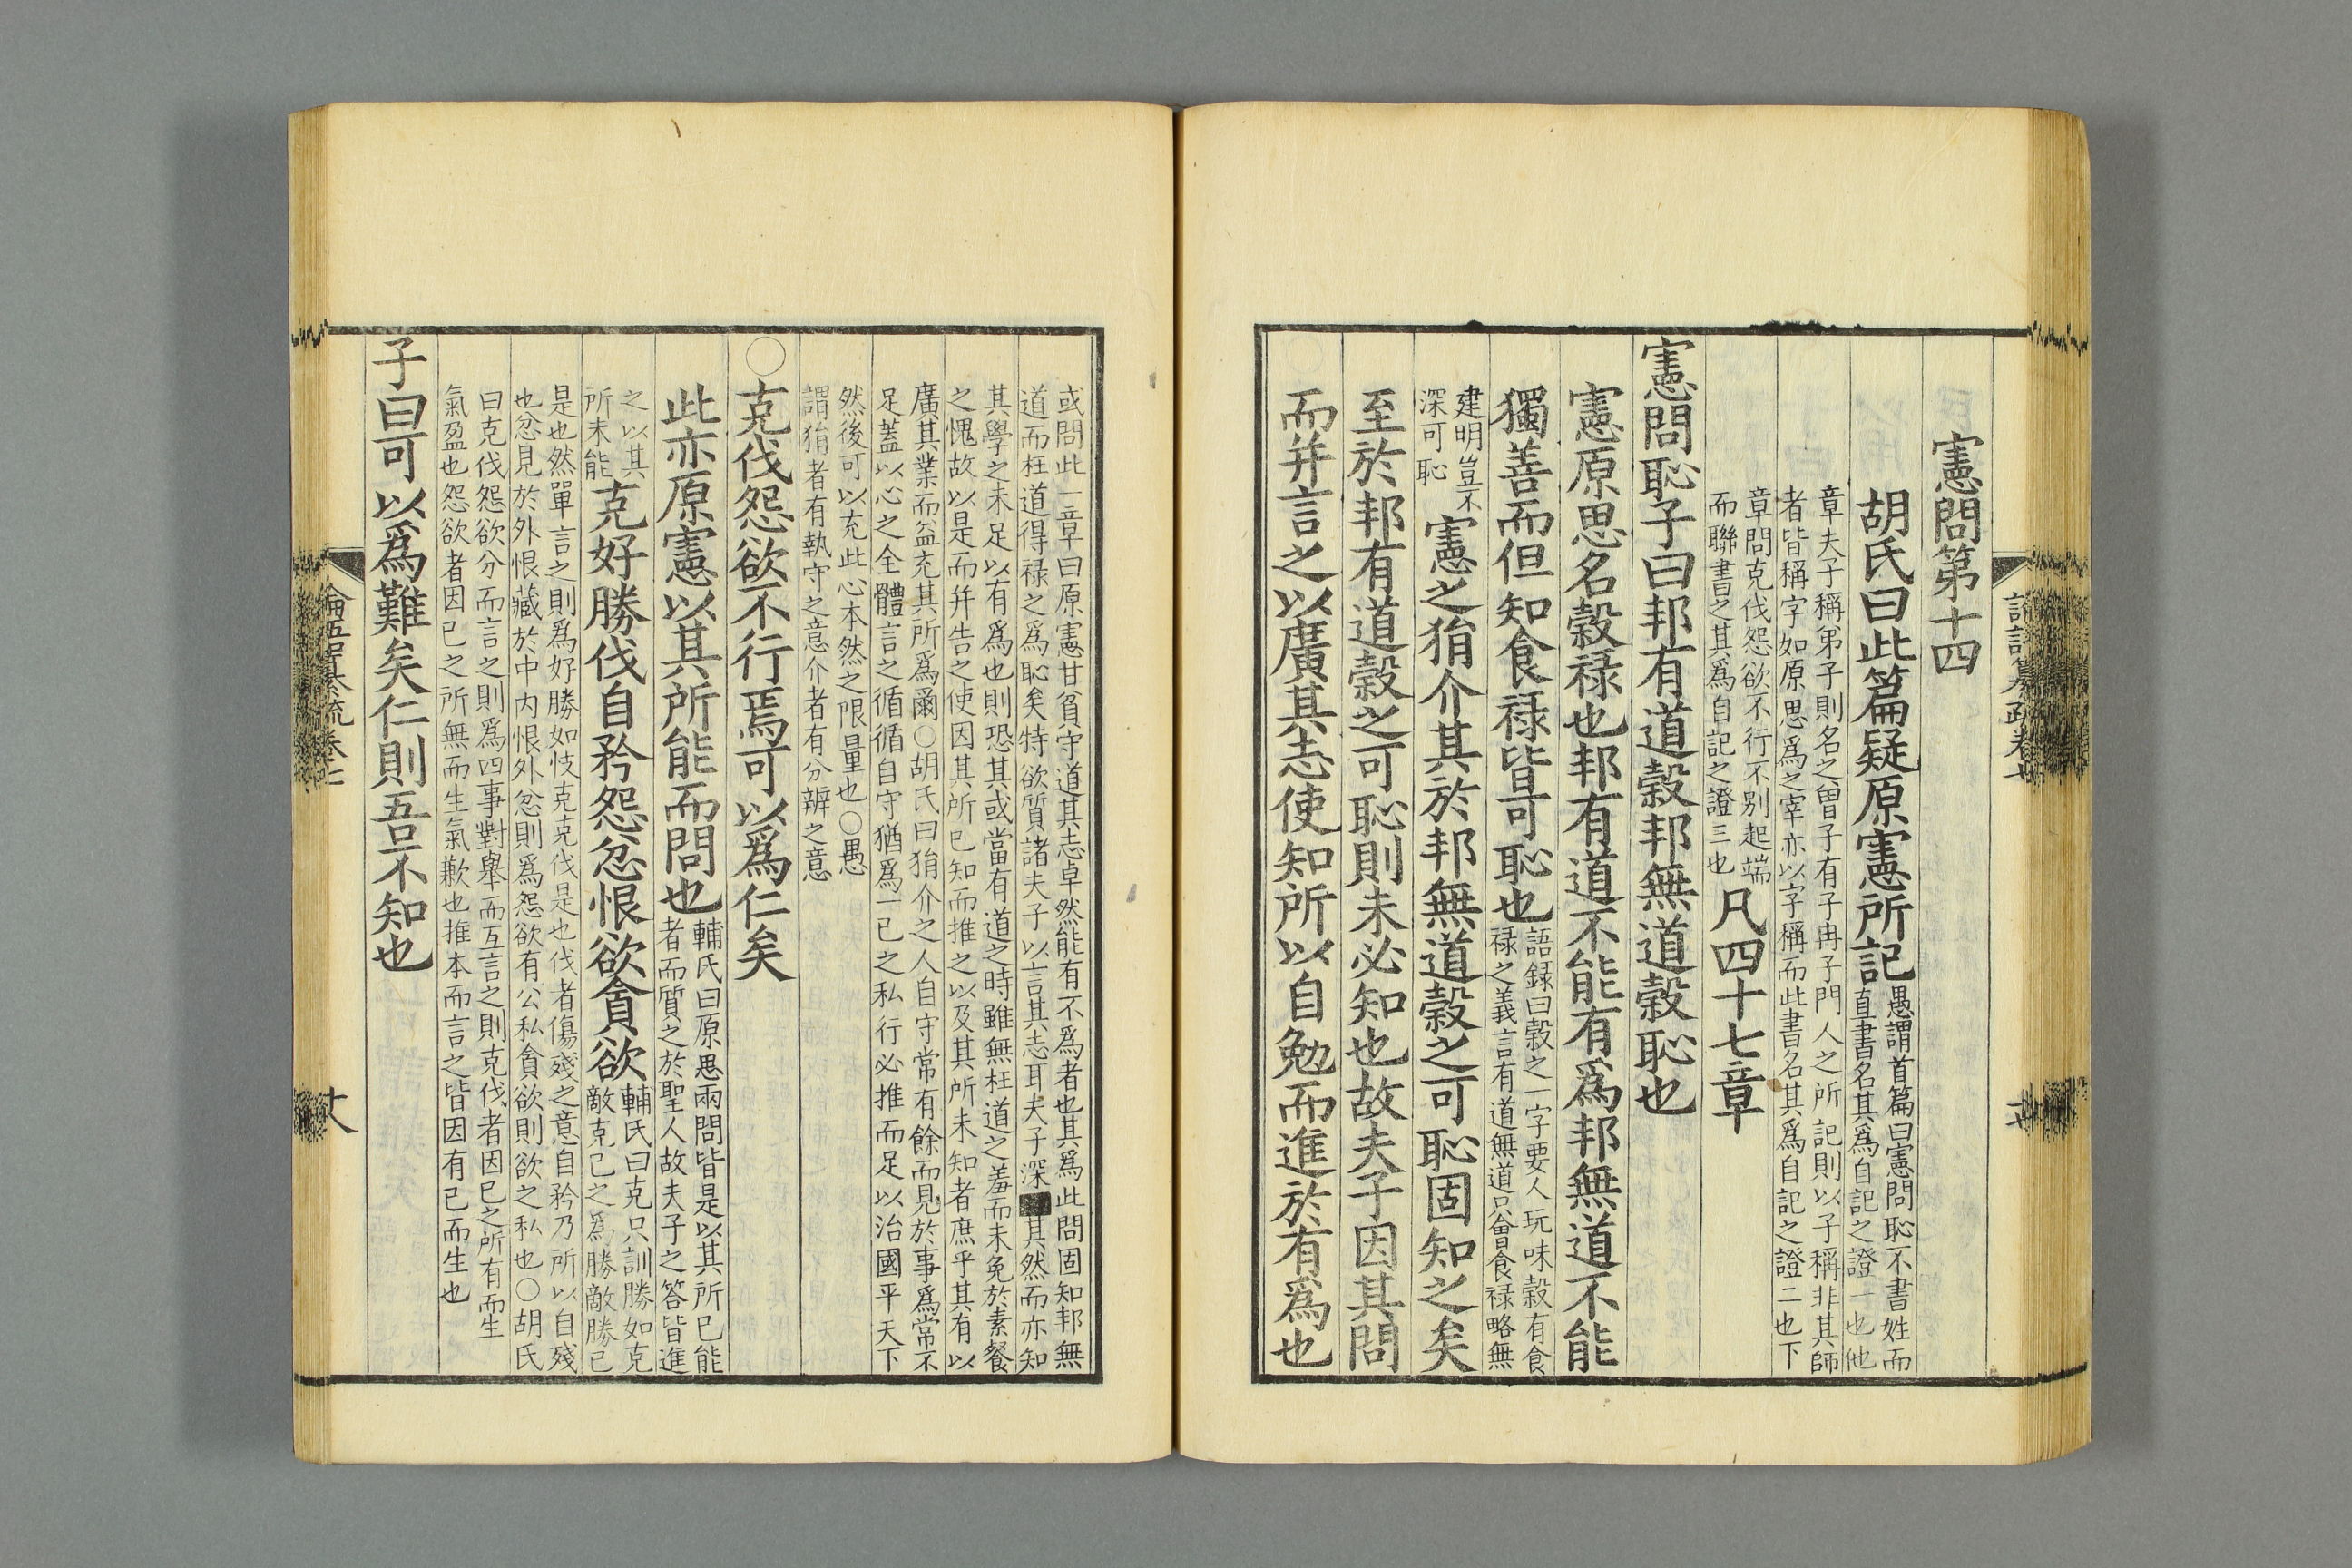 憲問第十四
胡氏曰此篇疑原憲所記愚謂首篇曰憲問恥不書姓而
直書名其爲自記之證一也他
章夫子稱弟子則名之曾子有子冉子門人之所記則以子稱非其師
者皆稱字如原思爲之宰亦以字稱而此書名其爲自記之證二也下
章問克伐怨欲不行不别起端
而聯書之其爲自記之證三也凡四十七章
憲問恥子曰邦有道穀邦無道穀恥也
憲原思名穀禄也邦有道不能有爲邦無道不能
獨善而但知食禄皆可恥也語録曰穀之一字要人玩味穀有食
禄之義言有道無道只會食禄略無
建明豈不
深可恥憲之狷介其於邦無道穀之可恥固知之矣
至於邦有道穀之可恥則未必知也故夫子因其問
而并言之以廣其志使知所以自勉而進於有爲也
或問此一章曰原憲甘貧守道其志卓然能有不爲者也其爲此問固知邦無
道而枉道得禄之爲恥矣特欲質諸夫子以言其志耳夫子深其然而亦知
其學之未足以有爲也則恐其或當有道之時雖無枉道之羞而未免於素餐
之愧故以是而并告之使因其所已知而推之以及其所未知者庶乎其有以
廣其業而益充其所爲爾○胡氏曰狷介之人自守常有餘而見於事爲常不
足蓋以心之全體言之循循自守猶爲一已之私行必推而足以治國平天下
然後可以充此心本然之限量也○愚
謂狷者有執守之意介者有分辨之意
○克伐怨欲不行焉可以爲仁矣
此亦原憲以其所能而問也輔氏曰原思兩問皆是以其所已能
者而質之於聖人故夫子之答皆進
之以其
所未能克好勝伐自矜怨忿恨欲貪欲輔氏曰克只訓勝如克
敵克已之爲勝敵勝已
是也然單言之則爲好勝如忮克克伐是也伐者傷殘之意自矜乃所以自殘
也忿見於外恨藏於中内恨外忿則爲怨欲有公私貪欲則欲之私也○胡氏
曰克伐怨欲分而言之則爲四事對舉而互言之則克伐者因已之所有而生
氣盈也怨欲者因已之所無而生氣歉也推本而言之皆因有已而生也
子曰可以爲難矣仁則吾不知也